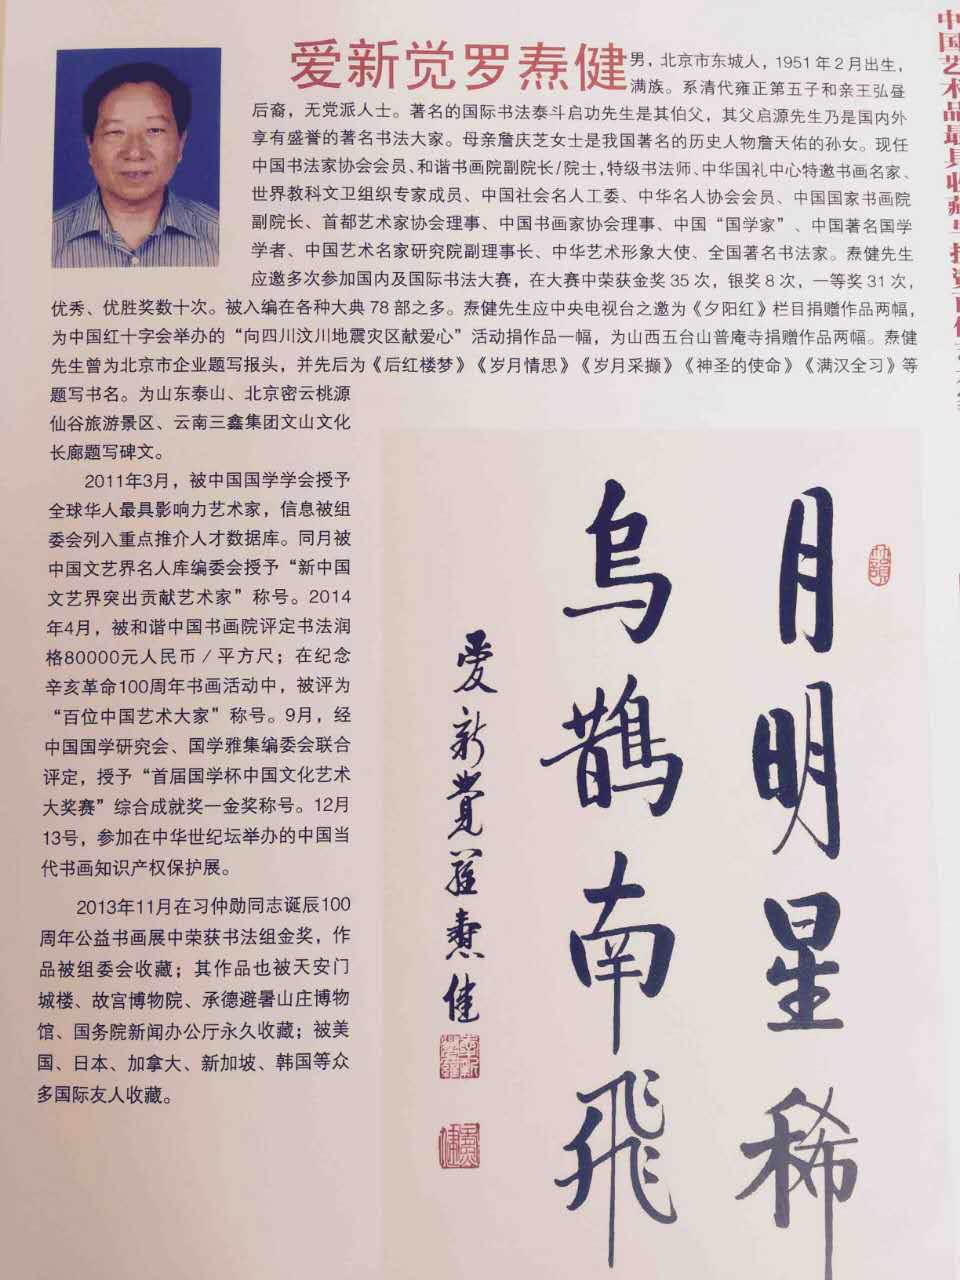 爱新觉罗焘健
男，北京市东城人，1951年2月出生，
满族。系清代雍正第五子和亲王弘昼
后裔，无党派人士。著名的国际书法泰斗启功先生是其伯父，其父启源先生乃是国内外
享有盛誉的著名书法大家。母亲詹庆芝女士是我国著名的历史人物詹天佑的孙女。现任
中国书法家协会会员、和谐书画院副院长/院士，特级书法师、中华国礼中心特邀书画名家、
世界教科文卫组织专家成员、中国社会名人工委、中华名人协会会员、中国国家书画院
副院长、首都艺术家协会理事、中国书画家协会理事、中国“国学家”、中国著名国学
学者、中国艺术名家研究院副理事长、中华艺术形象大使、全国著名书法家。焘健先生
应邀多次参加国内及国际书法大赛，在大赛中荣获金奖35次，银奖8次，一等奖31次，
优秀、优胜奖数十次。被入编在各种大典78部之多。焘健先生应中央电视台之邀为《夕阳红》栏目捐赠作品两幅，
为中国红十字会举办的“向四川汶川地震灾区献爱心”活动捐作品一幅，为山西五台山普庵寺捐赠作品两幅。焘健
先生曾为北京市企业题写报头，并先后为《后红楼梦》《岁月情思》《岁月采撷》《神圣的使命》《满汉全习》等
题写书名。为山东泰山、北京密云桃源
仙谷旅游景区、云南三鑫集团文山文化
长廊题写碑文。
2011年3月，被中国国学学会授予
全球华人最具影响力艺术家，信息被组
委会列入重点推介人才数据库。同月被
中国文艺界名人库编委会授予“新中国
文艺界突出贡献艺术家”称号。2014
年4月，被和谐中国书画院评定书法润
格80000元人民币／平方尺；在纪念
辛亥革命100周年书画活动中，被评为
“百位中国艺术大家”称号。9月，经
中国国学研究会、国学雅集编委会联合
评定，授予“首届国学杯中国文化艺术
大奖赛”综合成就奖一金奖称号。12月
13号，参加在中华世纪坛举办的中国当
代书画知识产权保护展。
2013年11月在习仲勋同志诞辰100
周年公益书画展中荣获书法组金奖，作
品被组委会收藏；其作品也被天安门
城楼、故宫博物院、承德避暑山庄博物
馆、国务院新闻办公厅永久收藏；被美
国、日本、加拿大、新加坡、韩国等众
多国际友人收藏。
月明星稀
烏鵲南飛
爱新覺羅焘健
中国艺术品最具收藏与投资